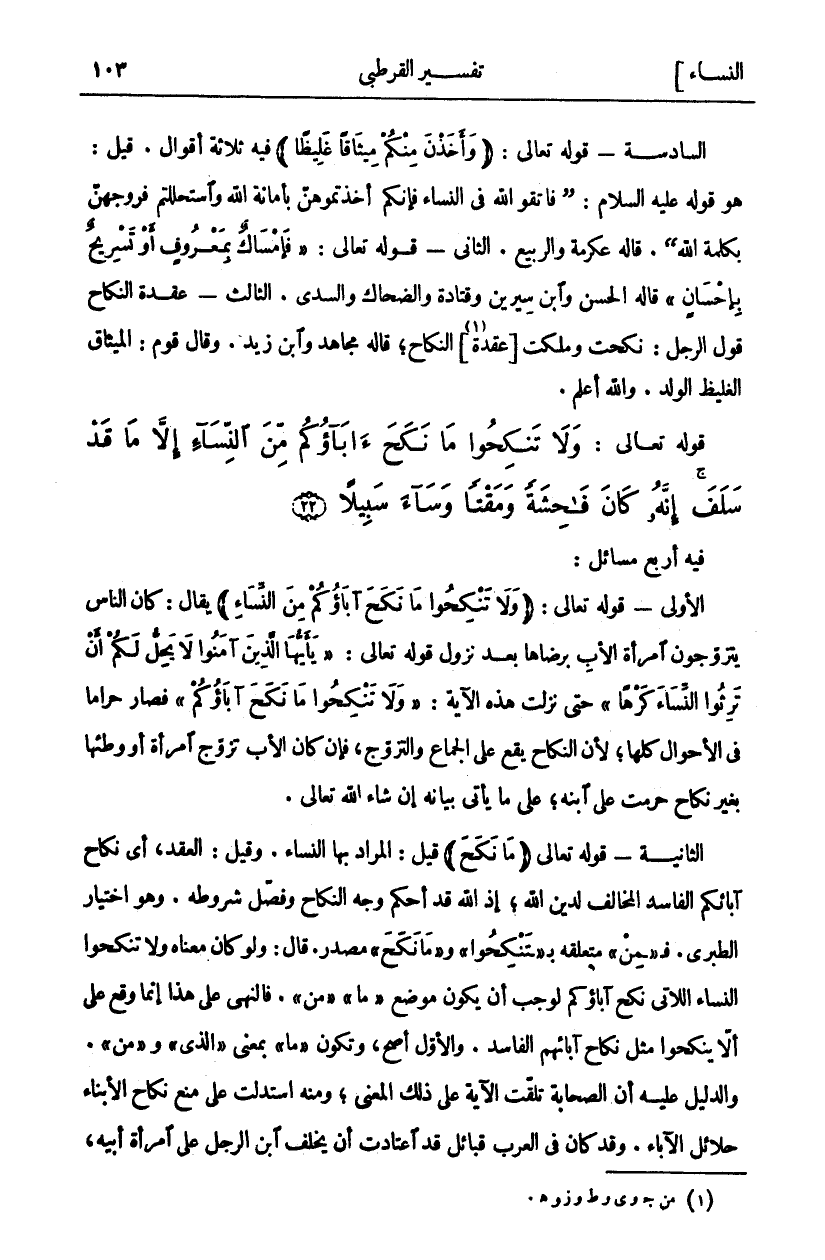 النساء ] تفسير القرطبى ١٠٣
السادسة – قوله تعالى : ﴿ وَأَخَذْنَ مِنْكُمْ مِيثَاقًا غَلِيظًا ﴾ فيه ثلاثة أقوال . قيل :
هو قوله عليه السلام : ” فاتقو الله فى النساء فإنكم أخذتموهنّ بأمانة الله وٱستحللتم فروجهنّ
بكلمة الله “ . قاله عكرمة والربيع . الثانى – قوله تعالى : « فَإِمْسَاكٌ بِمَعْرُوفٍ أَوْ تَسْرِيحٌ
بِإِحْسَانٍ » قاله الحسن وٱبن سيرين وقتادة والضحاك والسدى . الثالث – عقدة النكاح
قول الرجل : نكحت وملكت [عقدة](١) النكاح؛ قاله مجاهد وٱبن زيد . وقال قوم : الميثاق
الغليظ الولد . والله أعلم .
قوله تعالى : وَلَا تَنكِحُوا مَا نَكَحَ ءَابَآؤُكُم مِّنَ ٱلنِّسَآءِ إِلَّا مَا قَدْ
سَلَفَ ۚ إِنَّهُۥ كَانَ فَـٰحِشَةً وَمَقْتًا وَسَآءَ سَبِيلًا ﴿٢٢﴾
فيه أربع مسائل :
الأولى – قوله تعالى : ﴿ وَلَا تَنْكِحُوا مَا نَكَحَ آبَاؤُكُمْ مِنَ النِّسَاءِ ﴾ يقال : كان الناس
يتزوّجون ٱمرأة الأب برضاها بعد نزول قوله تعالى : « يَأَيُّهَا الَّذِينَ آمَنُوا لَا يَحِلُّ لَكُمْ أَنْ
تَرِثُوا النِّسَاءَ كَرْهًا » حتى نزلت هذه الآية : « وَلَا تَنْكِحُوا مَا نَكَحَ آبَاؤُكُمْ » فصار حراما
فى الأحوال كلها؛ لأن النكاح يقع على الجماع والتزوّج، فإن كان الأب تزوّج ٱمرأة أو وطئها
بغير نكاح حرمت على ٱبنه؛ على ما يأتى بيانه إن شاء الله تعالى .
الثانية – قوله تعالى ﴿ مَا نَكَحَ ﴾ قيل : المراد بها النساء . وقيل : العقد، أى نكاح
آبائكم الفاسد المخالف لدين الله ؛ إذ الله قد أحكم وجه النكاح وفصّل شروطه . وهو اختيار
الطبرى . فـ«ـمِنْ» متعلقه بـ«ـتَنْكِحُوا» و«مَا نَكَحَ» مصدر. قال : ولو كان معناه ولا تنكحوا
النساء اللاتى نكح آباؤكم لوجب أن يكون موضع « ما » «من» . فالنهى على هذا إنما وقع على
ألّا ينكحوا مثل نكاح آبائهم الفاسد . والأوّل أصح، وتكون «ما» بمعنى «الذى» و«من» .
والدليل عليه أن الصحابة تلقّت الآية على ذلك المعنى ؛ ومنه استدلت على منع نكاح الأبناء
حلائل الآباء . وقد كان فى العرب قبائل قد ٱعتادت أن يخلف ٱبن الرجل على ٱمرأة أبيه،
(١) من جـ وى و ط و ز و هـ .